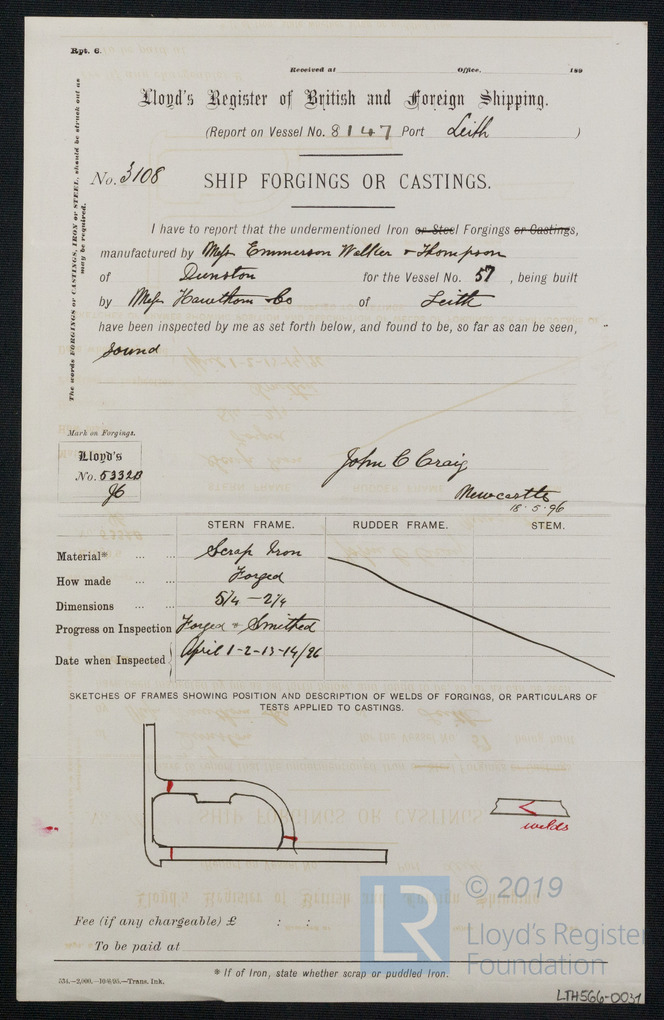 Rpt. 6.
Received at Office. 189
Lloyd's Register of British and Foreign Shipping.
(Report on Vessel No. 8147 Port Leith )
No. 3108 SHIP FORGINGS OR CASTINGS.
The words FORGINGS or CASTINGS, IRON or STEEL, should be struck out as
may be required.
I have to report that the undermentioned Iron or Steel Forgings or Castings,
manufactured by Messrs Emmerson Walker & Thompson
of Dunston for the Vessel No. 57 , being built
by Messrs Hawthorn & Co of Leith
have been inspected by me as set forth below, and found to be, so far as can be seen,
Sound
Mark on Forgings.
Lloyd's
No. 5332B
JC
John C Craig
Newcastle
18.5.96
STERN FRAME. RUDDER FRAME. STEM.
Material* ... ... Scrap Iron
How made ... ... Forged
Dimensions ... ... 5¼ – 2¼
Progress on Inspection Forged & Smithed
Date when Inspected April 1-2-13-14/96
SKETCHES OF FRAMES SHOWING POSITION AND DESCRIPTION OF WELDS OF FORGINGS, OR PARTICULARS OF
TESTS APPLIED TO CASTINGS.
welds
Fee (if any chargeable) £ : :
To be paid at
* If of Iron, state whether scrap or puddled Iron.
534.—2,000.—10/6/95.—Trans. Ink.
LR © 2019
Lloyd's Register
Foundation
LTH566-0031